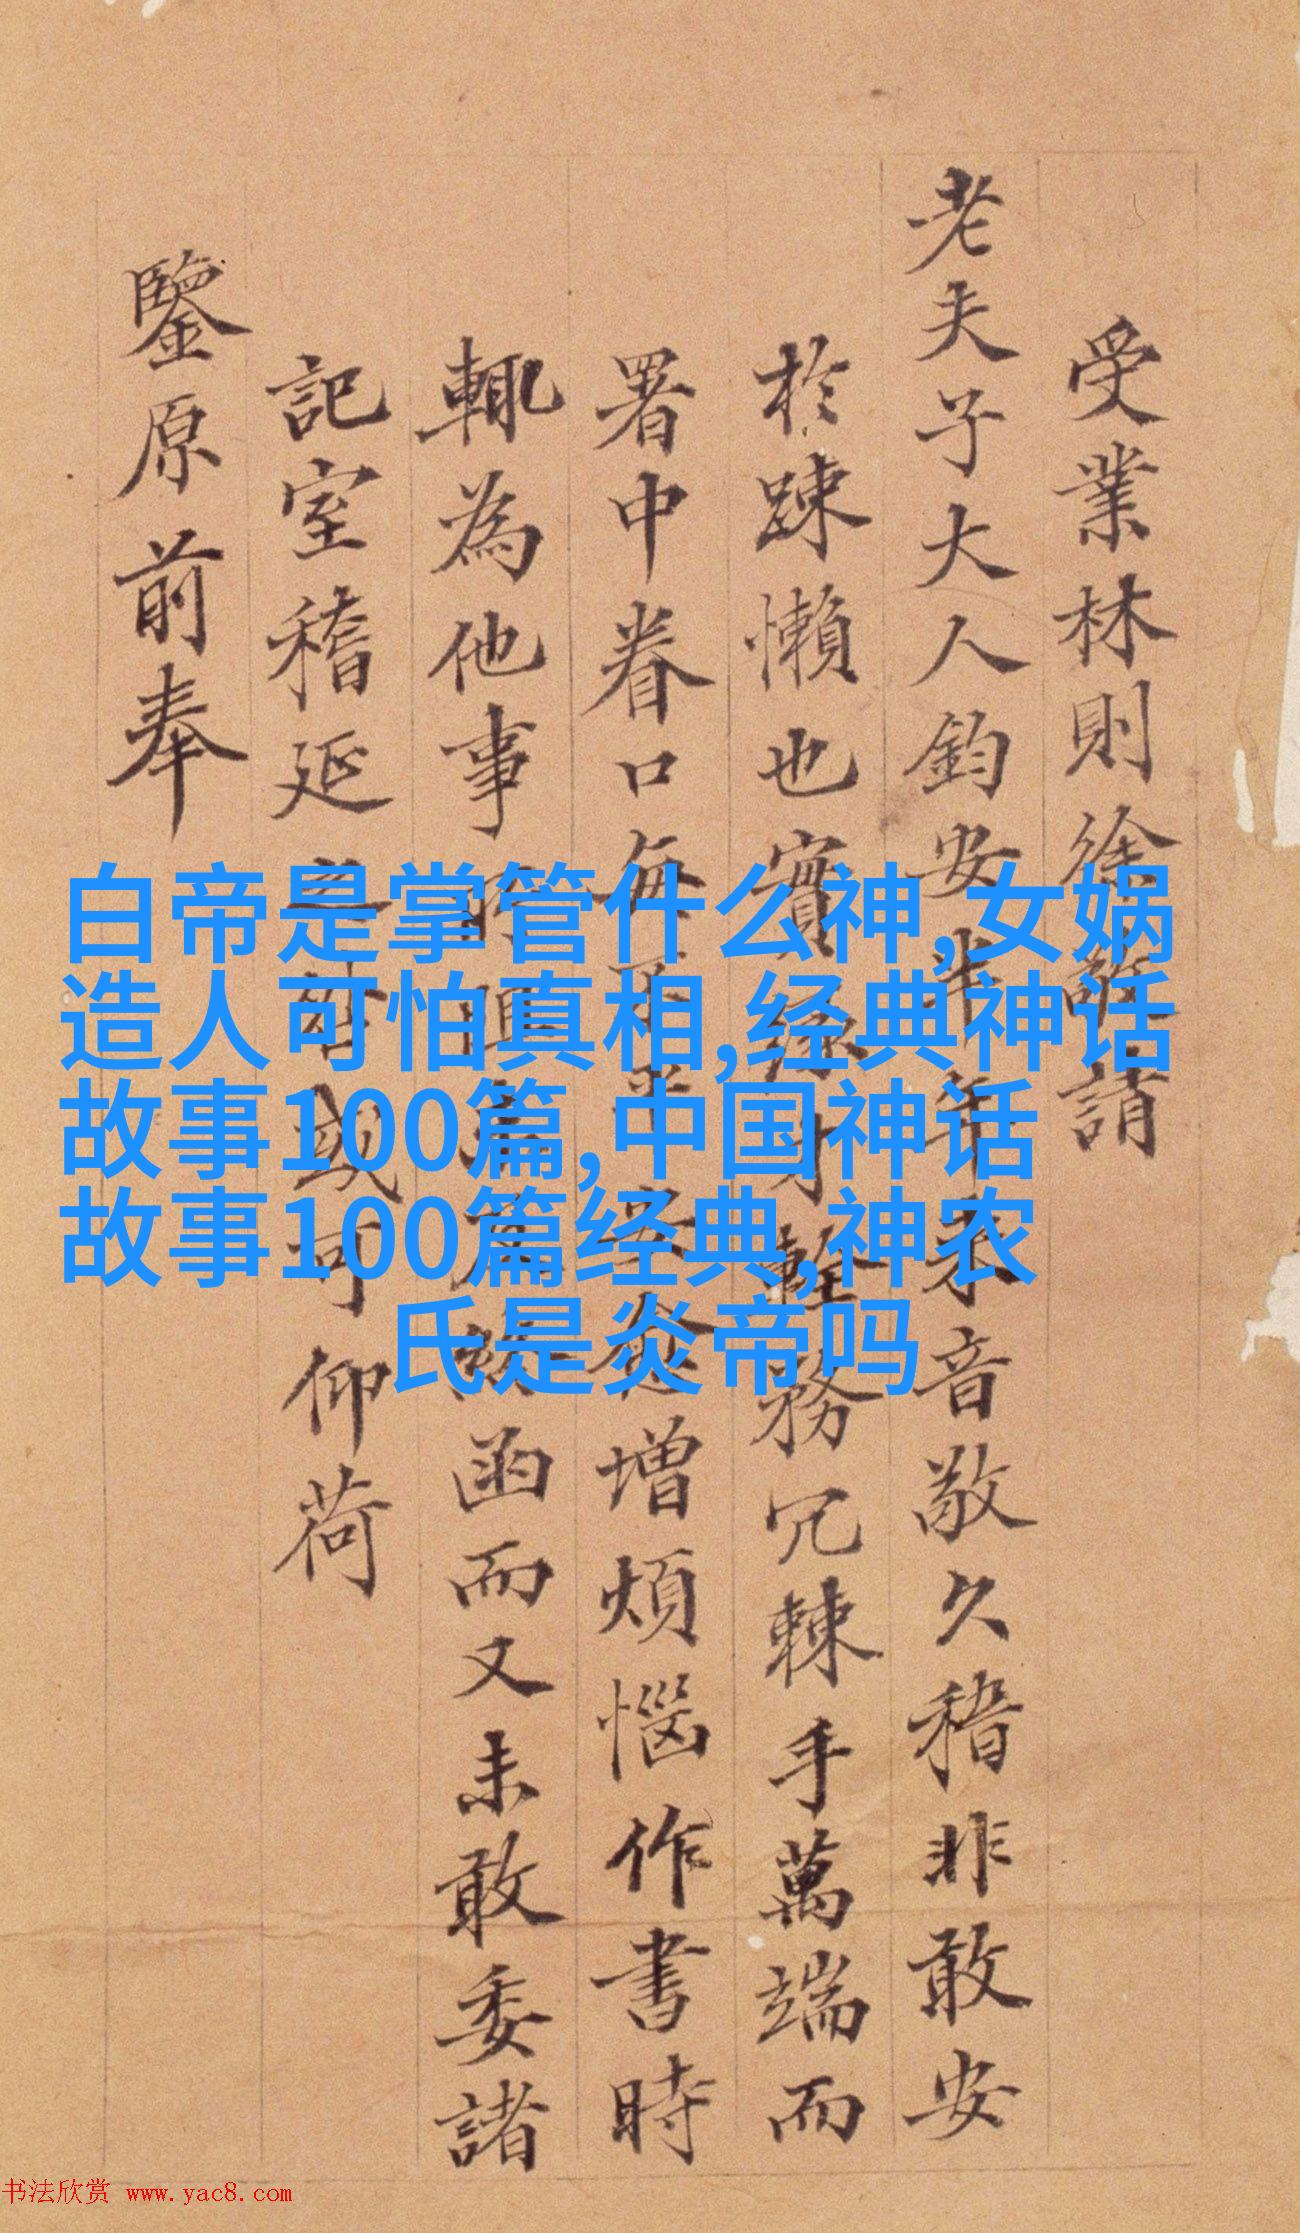 受業林則徐謹請
老夫子大人鈞安半年未音敬久稽非敢安
於踈懶也實緣才輇務冗棘手萬端而
署中眷口每不平安愈增煩惱作書時
輒為他事函而又未敢委諸
記室稽延或可仰荷
鑒原前奉
白帝是掌管什么神,女娲
造人可怕真相,经典神话
故事100篇,中国神话
故事100篇经典,神农
氏是炎帝吗
书法欣赏 www.yac8.com